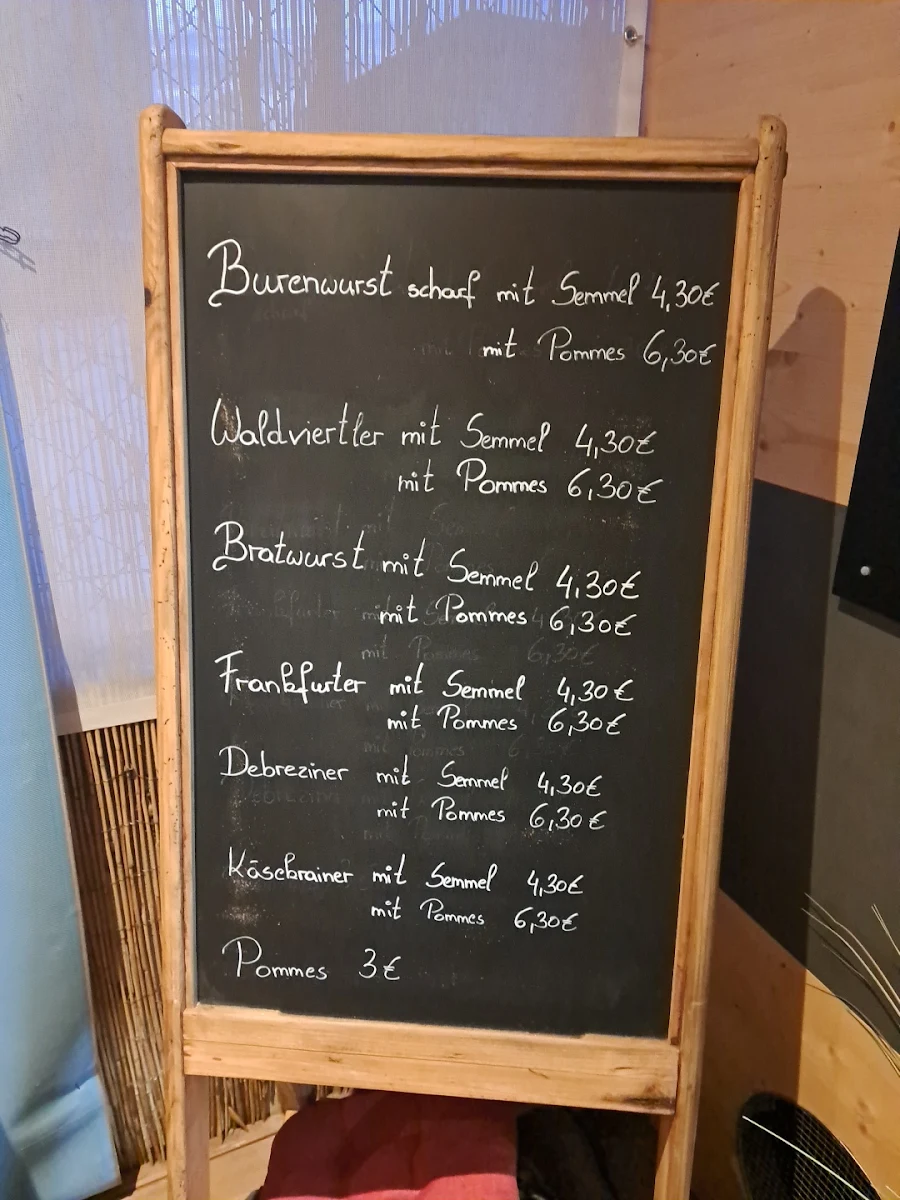 Burenwurst scharf mit Semmel 4,30€
mit Pommes 6,30€
Waldviertler mit Semmel 4,30€
mit Pommes 6,30€
Bratwurst mit Semmel 4,30€
mit Pommes 6,30€
Frankfurter mit Semmel 4,30€
mit Pommes 6,30€
Debreziner mit Semmel 4,30€
mit Pommes 6,30€
Käsekrainer mit Semmel 4,30€
mit Pommes 6,30€
Pommes 3€